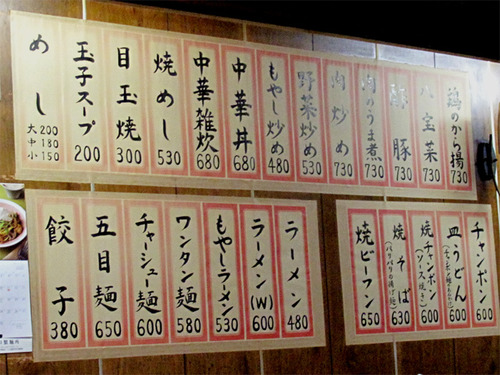 鶏のから揚 730
八宝菜 730
酢豚 730
肉のうま煮 730
肉炒め 730
野菜炒め 530
もやし炒め 480
中華丼 680
中華雑炊 680
焼めし 530
目玉焼 300
玉子スープ 200
めし 大200 中180 小150
チャンポン 600
皿うどん 600
焼チャンポン (ソース焼き) 650
焼そば (パリパリの揚げ麺) 630
焼ビーフン 650
ラーメン 480
ラーメン(W) 600
もやしラーメン 530
ワンタン麺 580
チャーシュー麺 600
五目麺 650
餃子 380